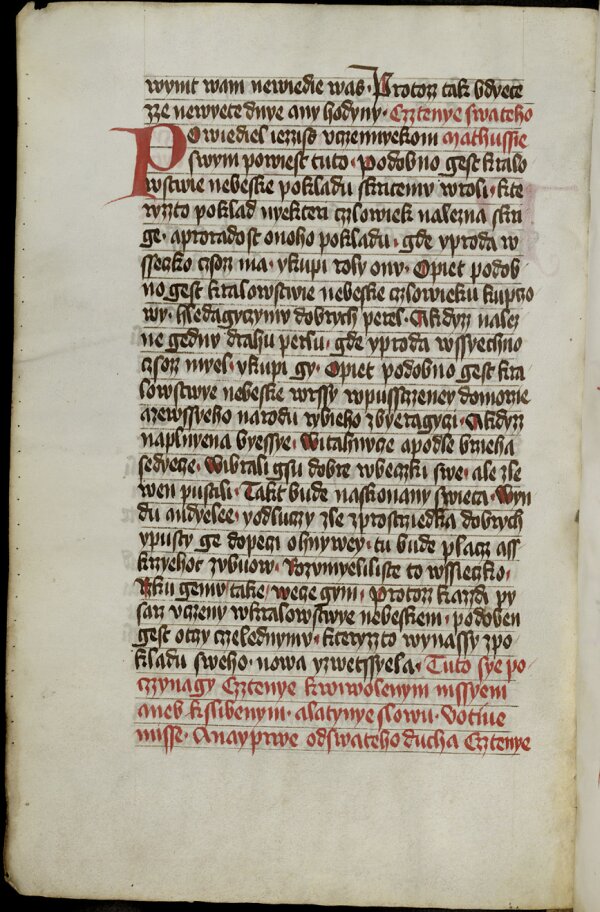 wymt wam newiedie was· Protoz tak bdyete
zze newyete dnye any hodyny· Cztenye swateho
Powiediel iezuso vczennyekom Mathussie
swym powiest tuto· Podobno gest kralo
wstwie nebeske pokladu skritemu w roli· kte
ryzto poklad nyekteri czlowiek nalezna skri
ge· a pro radost onoho pokladu· gde y proda w
sseczko czoz ma· y kupi roly onu· Opiet podob
no gest kralowstwie nebeske czlowieku kupczo
wy· hledagyczymy dobrych perel· A kdyz nalez
ne gednu drahu perlu· gde y proda wssyechno
czoz myel· y kupi gy· Opiet podobno gest kra
lowstwye nebeske wrssy wpusstzeney do morie
a ze wssyeho narodu rybieho zbyeragyczi· A kdyz
naplnyena byessye· Witahnuce a podle brzeha
sedyece· Wibrali gsu dobre w beczki swe· ale zle
wen pustili· Takt bude na skonany swieta· Wyn
du andyelee· y odluczy zle z prostrziedka dobrych
y pusty ge do peczi ohnywey· tu bude placz a ss
krzyehot zybuow· Rozumyeli liste to wssieczko·
Rku gemu take· wece gym· Protoz kazdi py
sarz vczeny w kralowstwye nebeskem· podoben
gest otczy czelednymu· kteryzto wynassy z po
kladu sweho· nowa y zwetssyela· Tuto sye po
czynagy Cztenye k wiwolenym missyem
aneb k slibenym· a latynye slowu· Votiue
misse· A nayprwe od swateho ducha Cztenye